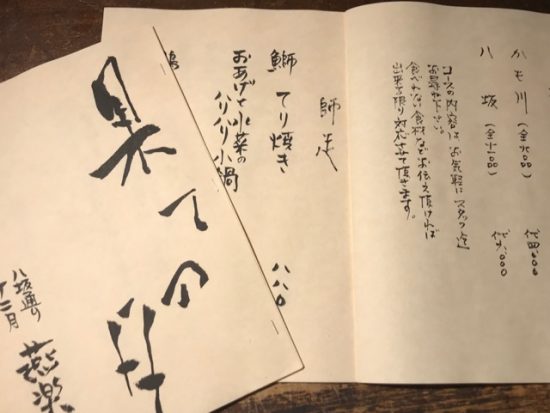 かも川(全九品) 代四、〇〇〇
八坂(全十一品) 代六、〇〇〇
コースの内容は、お気軽にスタッフ迄
お尋ね下さい。
食べれない食材などお伝え頂ければ
出来る限り対応させて頂きます。
師走
鰤 てり焼き
おあげと水菜の
ハリハリ小鍋 八八〇
果ての
八坂通り
十二月
燕楽